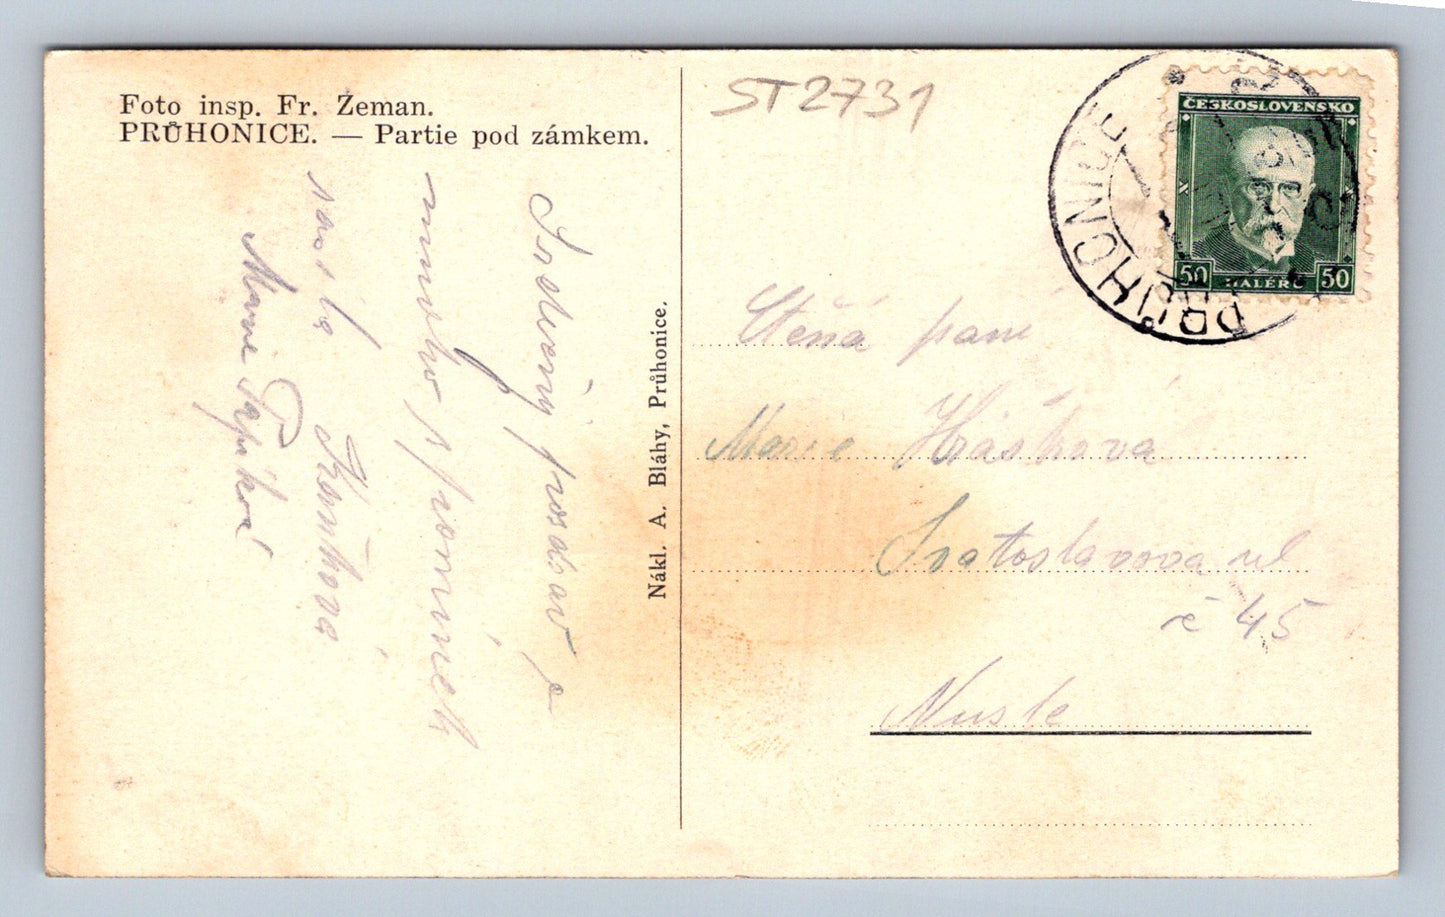 Foto insp. Fr. Zeman.
PRŮHONICE. — Partie pod zámkem.
Srdečný pozdrav a
mnoho vzpomínek
zasílá
Marie
Nákl. A. Bláhy, Průhonice.
ST2731
ČESKOSLOVENSKO
50 HALÉŘŮ 50
PRŮHONICE
paní
Marie Hášková
Svatoslavova ul
č 45
Nusle